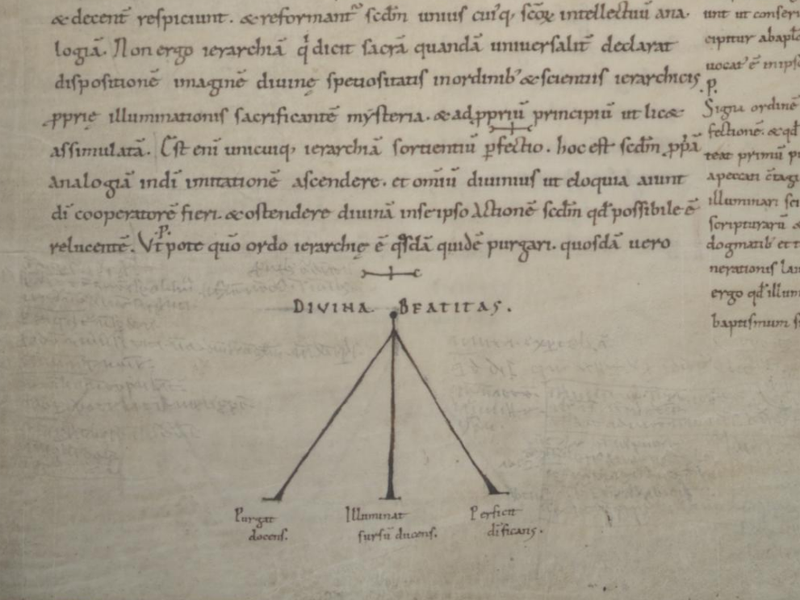 & decent respiciunt. & reformant᷑ scd̄m unius cuiq; sc̄oꝝ intellectuū ana
logiā. Non ergo ierarchiā q̄ dicit sacrā quandā universalit̄ declarat
dispositionē imaginē divinę speciositatis in ordinib; & scientiis ierarchicis
ꝓprię illuminationis sacrificantē mysteria. & ad ꝓpriū principiū ut lic&
assimulatā. Est eni unicuiq; ierarchiā sortientiū ꝑfectio. hoc est scd̄m ꝓp̄ā
analogiā indi imitationē ascendere. et omiū divinius ut eloquia aiunt
di cooperatorē fieri. & ostendere divinā in se ipso actionē scd̄m qd̄ possibile ē
relucentē. Ut pote quo ordo ierarchię ē q̄sdā quidē purgari. quosdā uero
DIVINA BEATITAS.
Purgat
docens.
Illuminat
sursū ducens.
Perficit
dificans.
unt ut
uocat̄ ē in ips
Signa ordinē
fectionē. & qd
teat primū p
apeccati
illuminari.
scripturarū
dogmatib; et
nerationis
ergo qd illum
baptismum